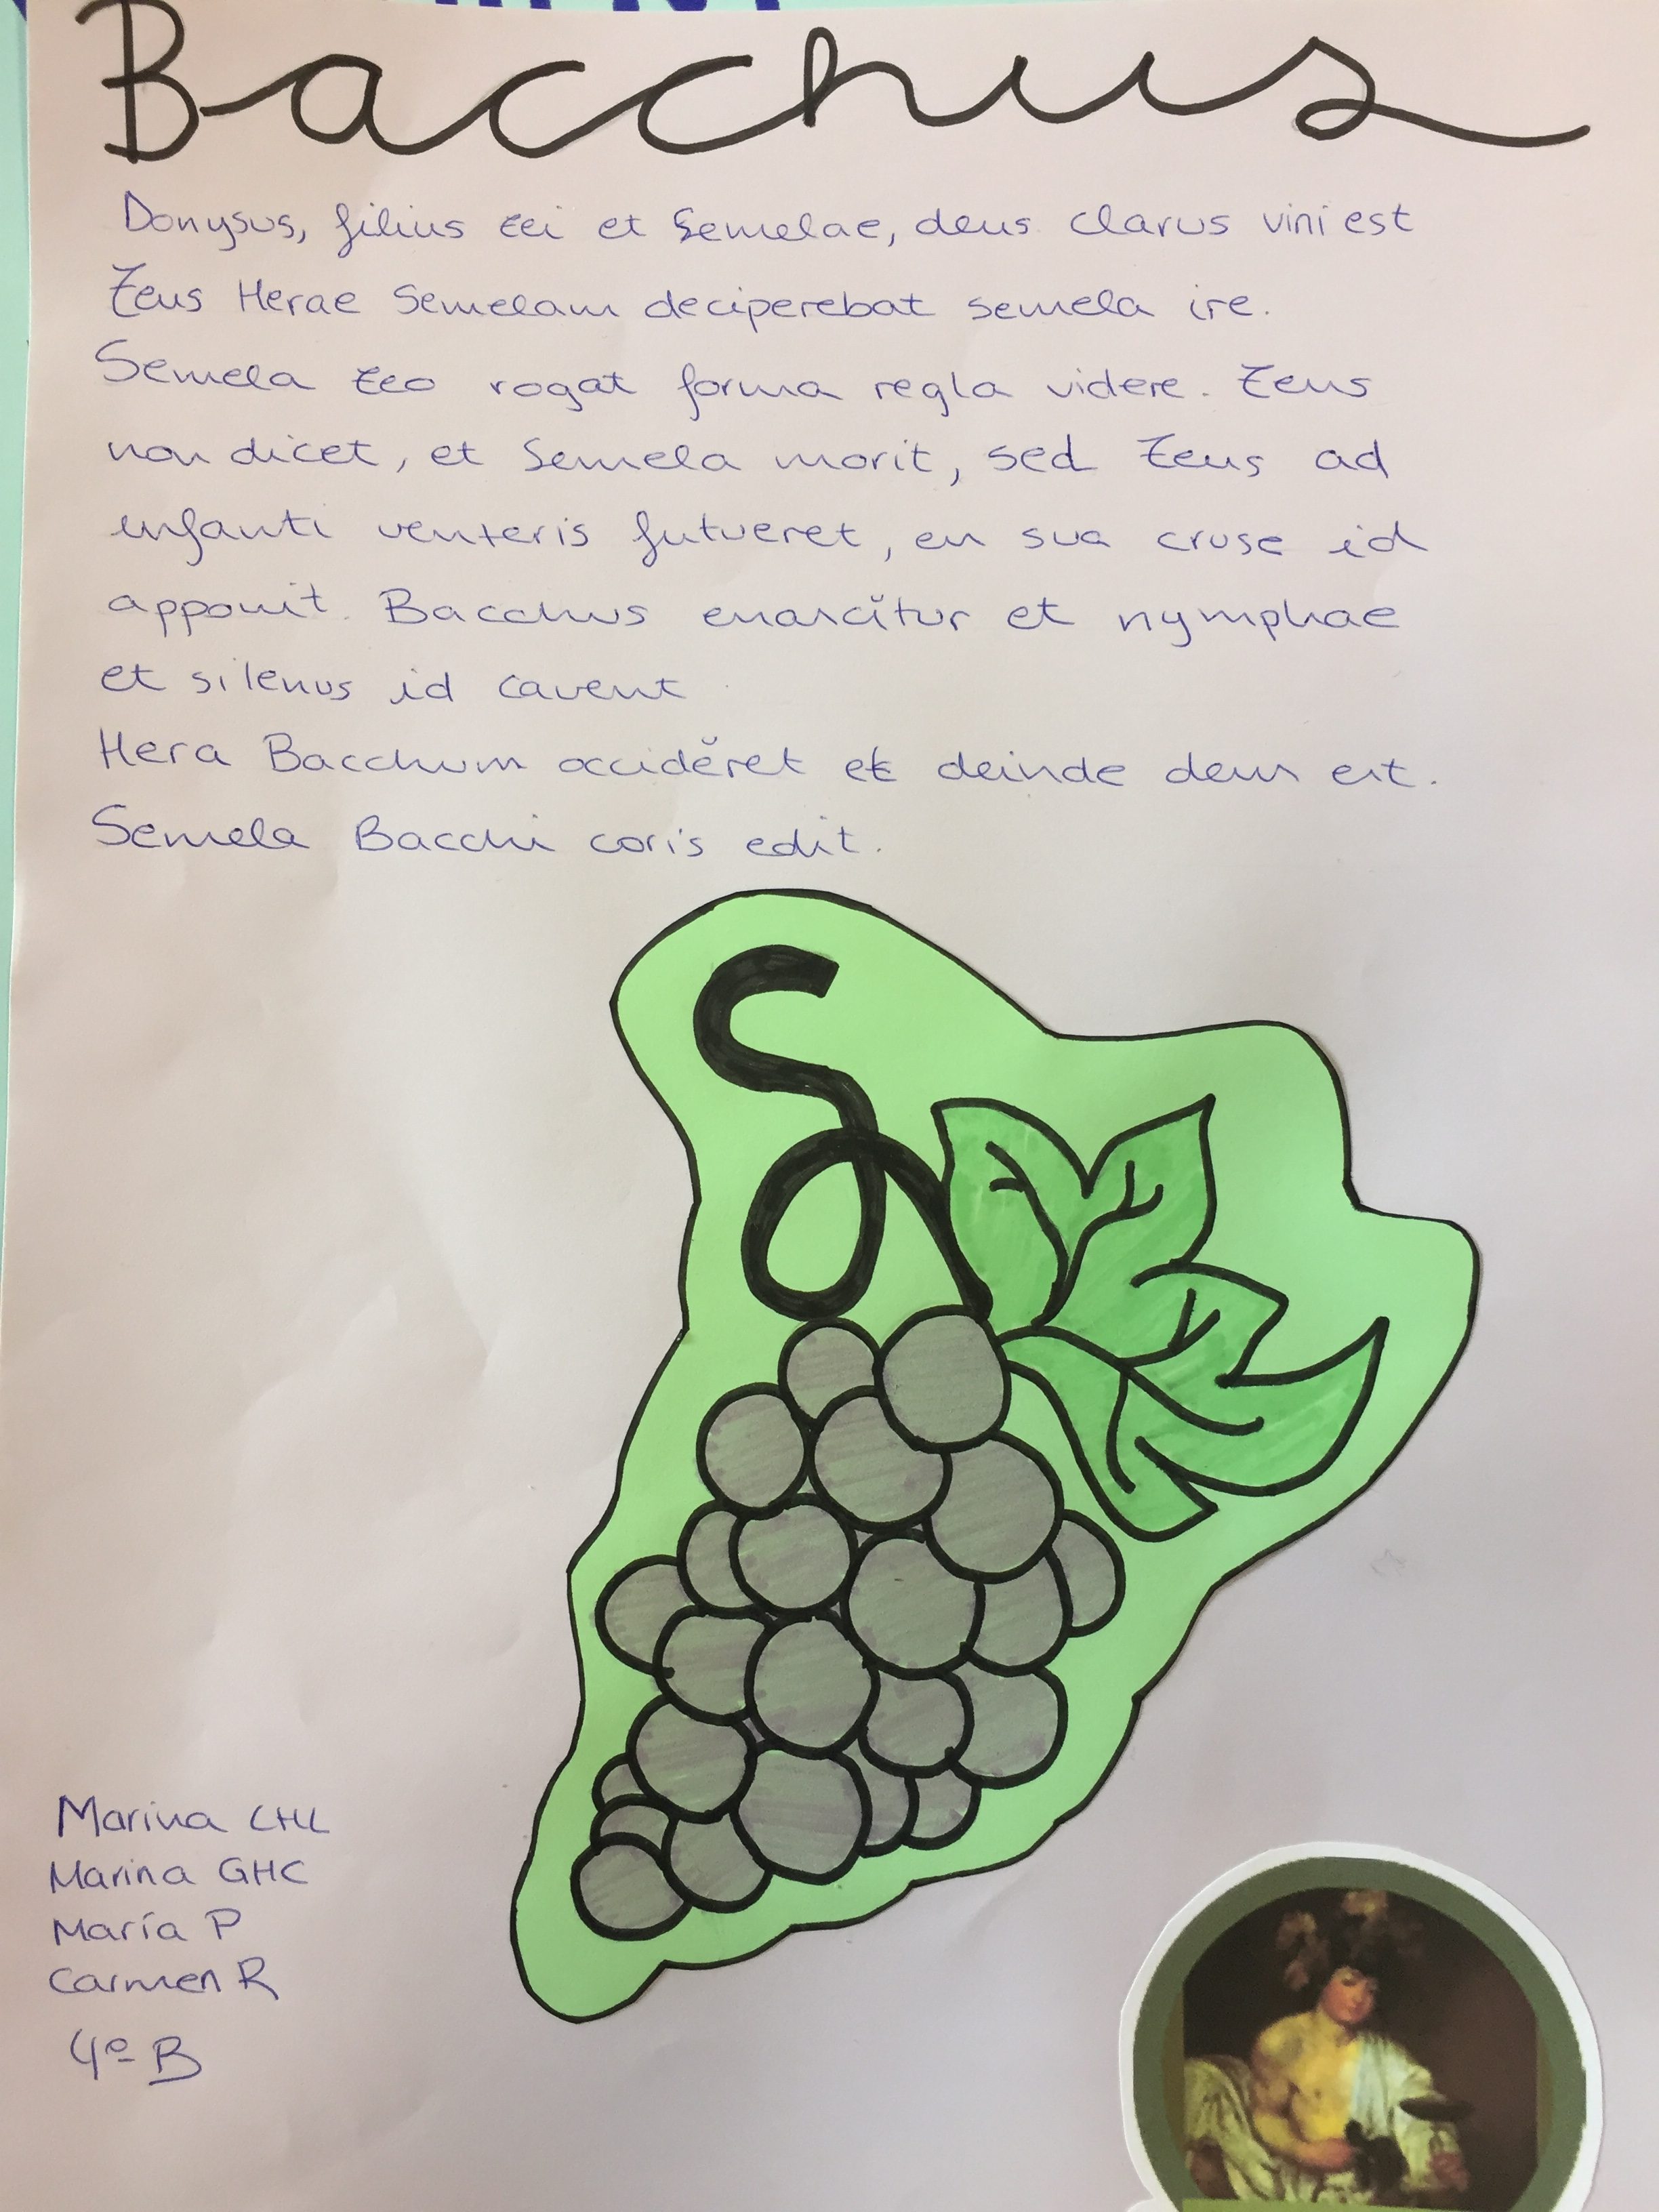 Bacchus
Donysus, filius Zei et Semelae, deus clarus vini est
Zeus Herae Semelam deciperebat semela ire.
Semela Zeo rogat forma regla videre. Zeus
non dicet, et Semela morit, sed Zeus ad
enfanti venteris futueret, en sua cruse id
apponit. Bacchus enascĭtur et nymphae
et silenus id cavent
Hera Bacchum occidĕret et deinde deus est.
Semela Bacchi coris edit.
Marina CHL
Marina GHC
María P
Carmen R
4º B